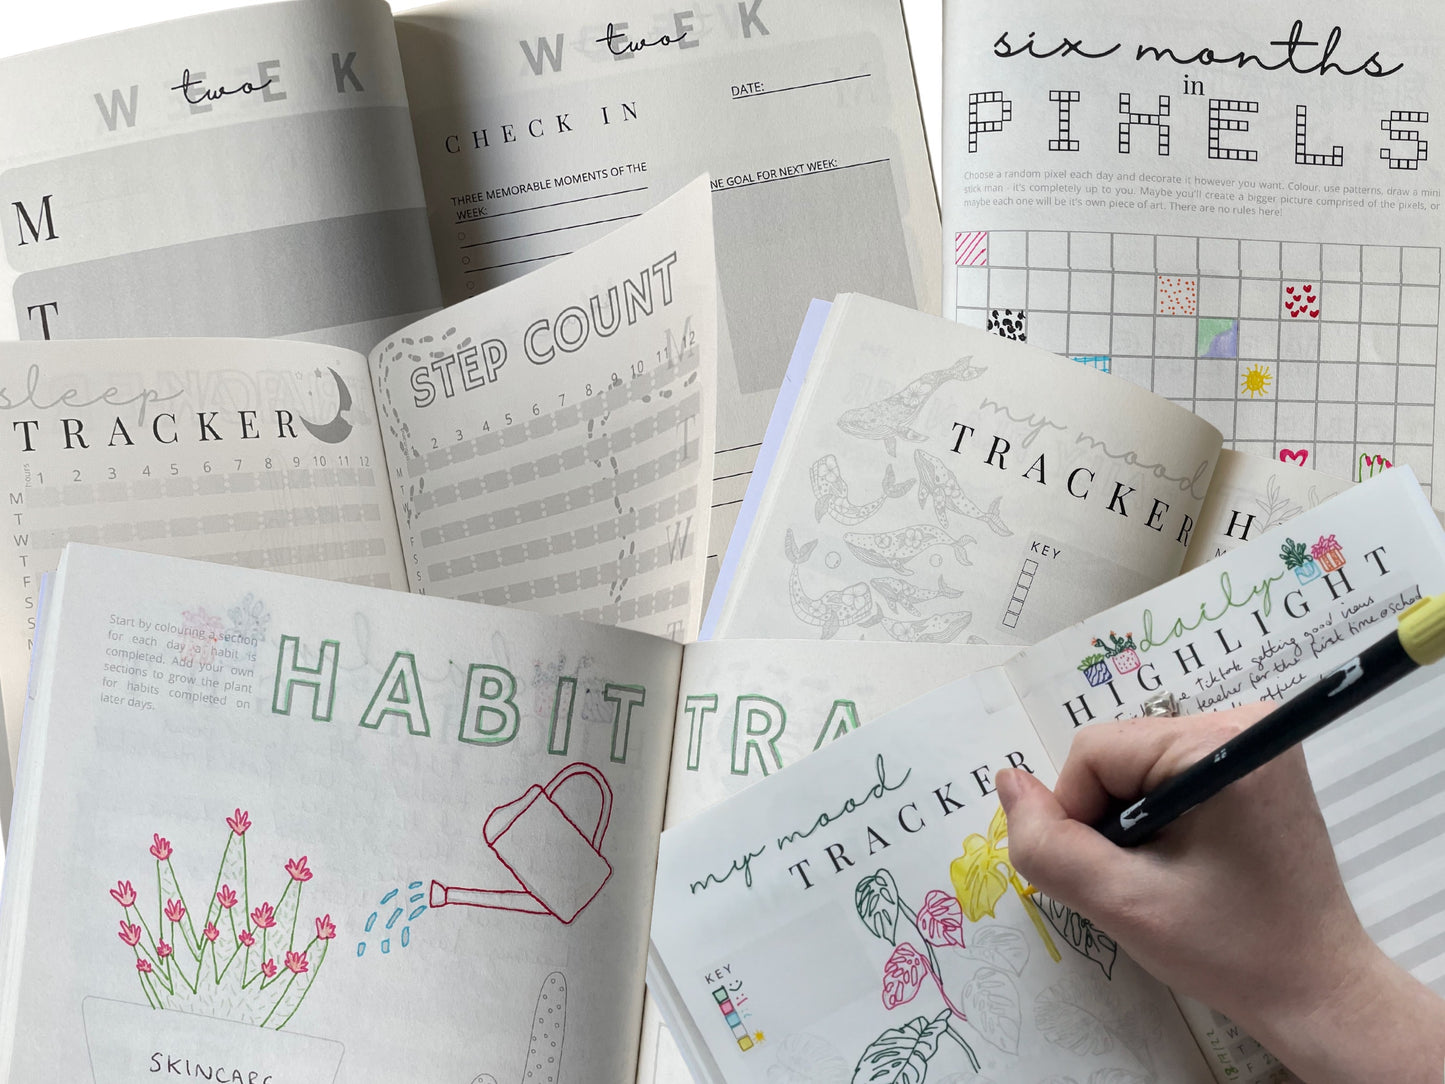 WEEK
two
M
T
WEEK
two
CHECK IN
DATE:
THREE MEMORABLE MOMENTS OF THE
WEEK:
NE GOAL FOR NEXT WEEK:
six months
in
PIXELS
Choose a random pixel each day and decorate it however you want. Colour, use patterns, draw a mini
stick man - it's completely up to you. Maybe you'll create a bigger picture comprised of the pixels, or
maybe each one will be it's own piece of art. There are no rules here!
sleep
TRACKER
hours
1 2 3 4 5 6 7 8 9 10 11 12
M
T
W
T
F
S
S
STEP COUNT
1 2 3 4 5 6 7 8 9 10 11 12
M
T
W
T
F
S
S
my mood
TRACKER
KEY
H
Start by colouring a section
for each day a habit is
completed. Add your own
sections to grow the plant
for habits completed on
later days.
HABIT
TRA
SKINCARE
my mood
TRACKER
KEY
daily
HIGHLIGHT
Tiktok getting good views
teacher for the first time @ school
office
W
T
F